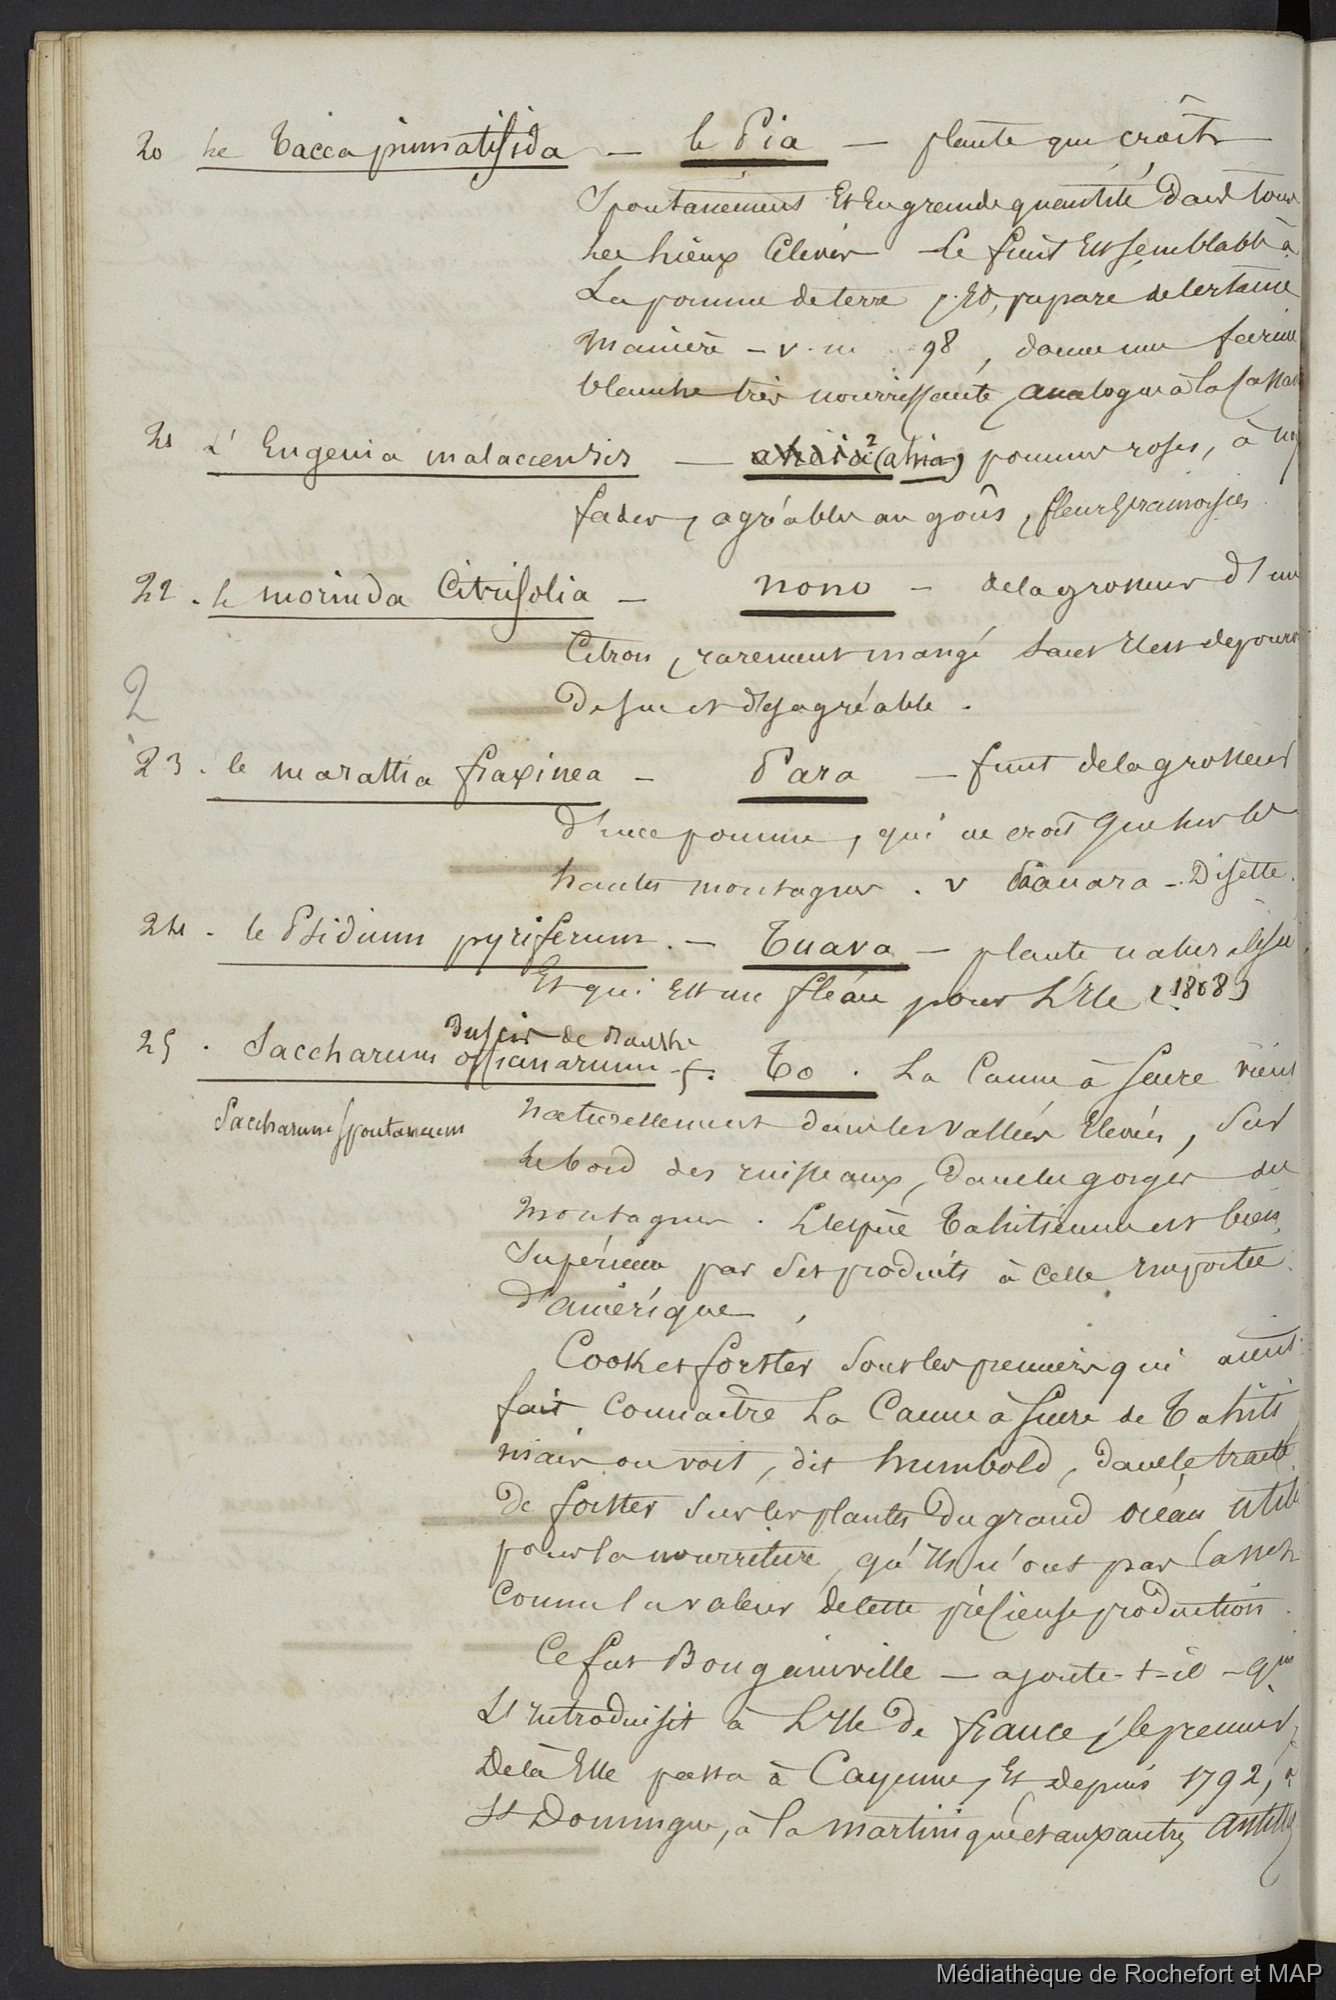 20 Le Tacca pinnatifida — le Pia — plante qui croît
spontanément Et En grande quantité dans tous
les lieux Elevés — Le fruit Est semblable à
La pomme de terre, Et, préparé de certaine
manière — v. m 98, donne une farine
blanche très nourrissante, analogue à la
21 L' Eugenia malaccensis — ahiia 2 (ahia) pommes roses,
fades, agréables au goût, fleurs cramoisies
22. le morinda Citrifolia — nono — de la grosseur d'un
Citron, rarement mangé
De suc et désagréable.
2
23. le marattia fraxinea — Para — fruit de la grosseur
d'une pomme, qui ne croît que sur les
hautes montagnes. v Faauara — Disette.
24. le Psidium pyriferum. — Tuava — plante naturalisée
Et qui Est un fléau pour L'Ile (1868)
Saccharum officinarum
25. To. La Canne à sucre vient
Saccharum spontaneum
naturellement dans les vallées Elevées, sur
le bord des ruisseaux, dans les gorges des
montagnes. L'espèce Tahitienne est bien
Supérieure par ses produits à celle importée
d'amérique.
Cook et forster sont les premiers qui aient
fait connaitre La Canne à sucre de Tahiti
mais on voit, dit humbold, dans le traité
De forster sur les plantes du grand océan utiles
pour la nourriture, qu'Ils n'ont pas assez
connu la valeur de cette précieuse production.
Ce fut Bougainville — ajoute-t-il — qui
L'Introduisit à L'Ile de france, le premier,
De là Elle passa à Cayenne, Et, depuis 1792, à
St Domingue, à la martinique et aux autres antilles
Médiathèque de Rochefort et MAP